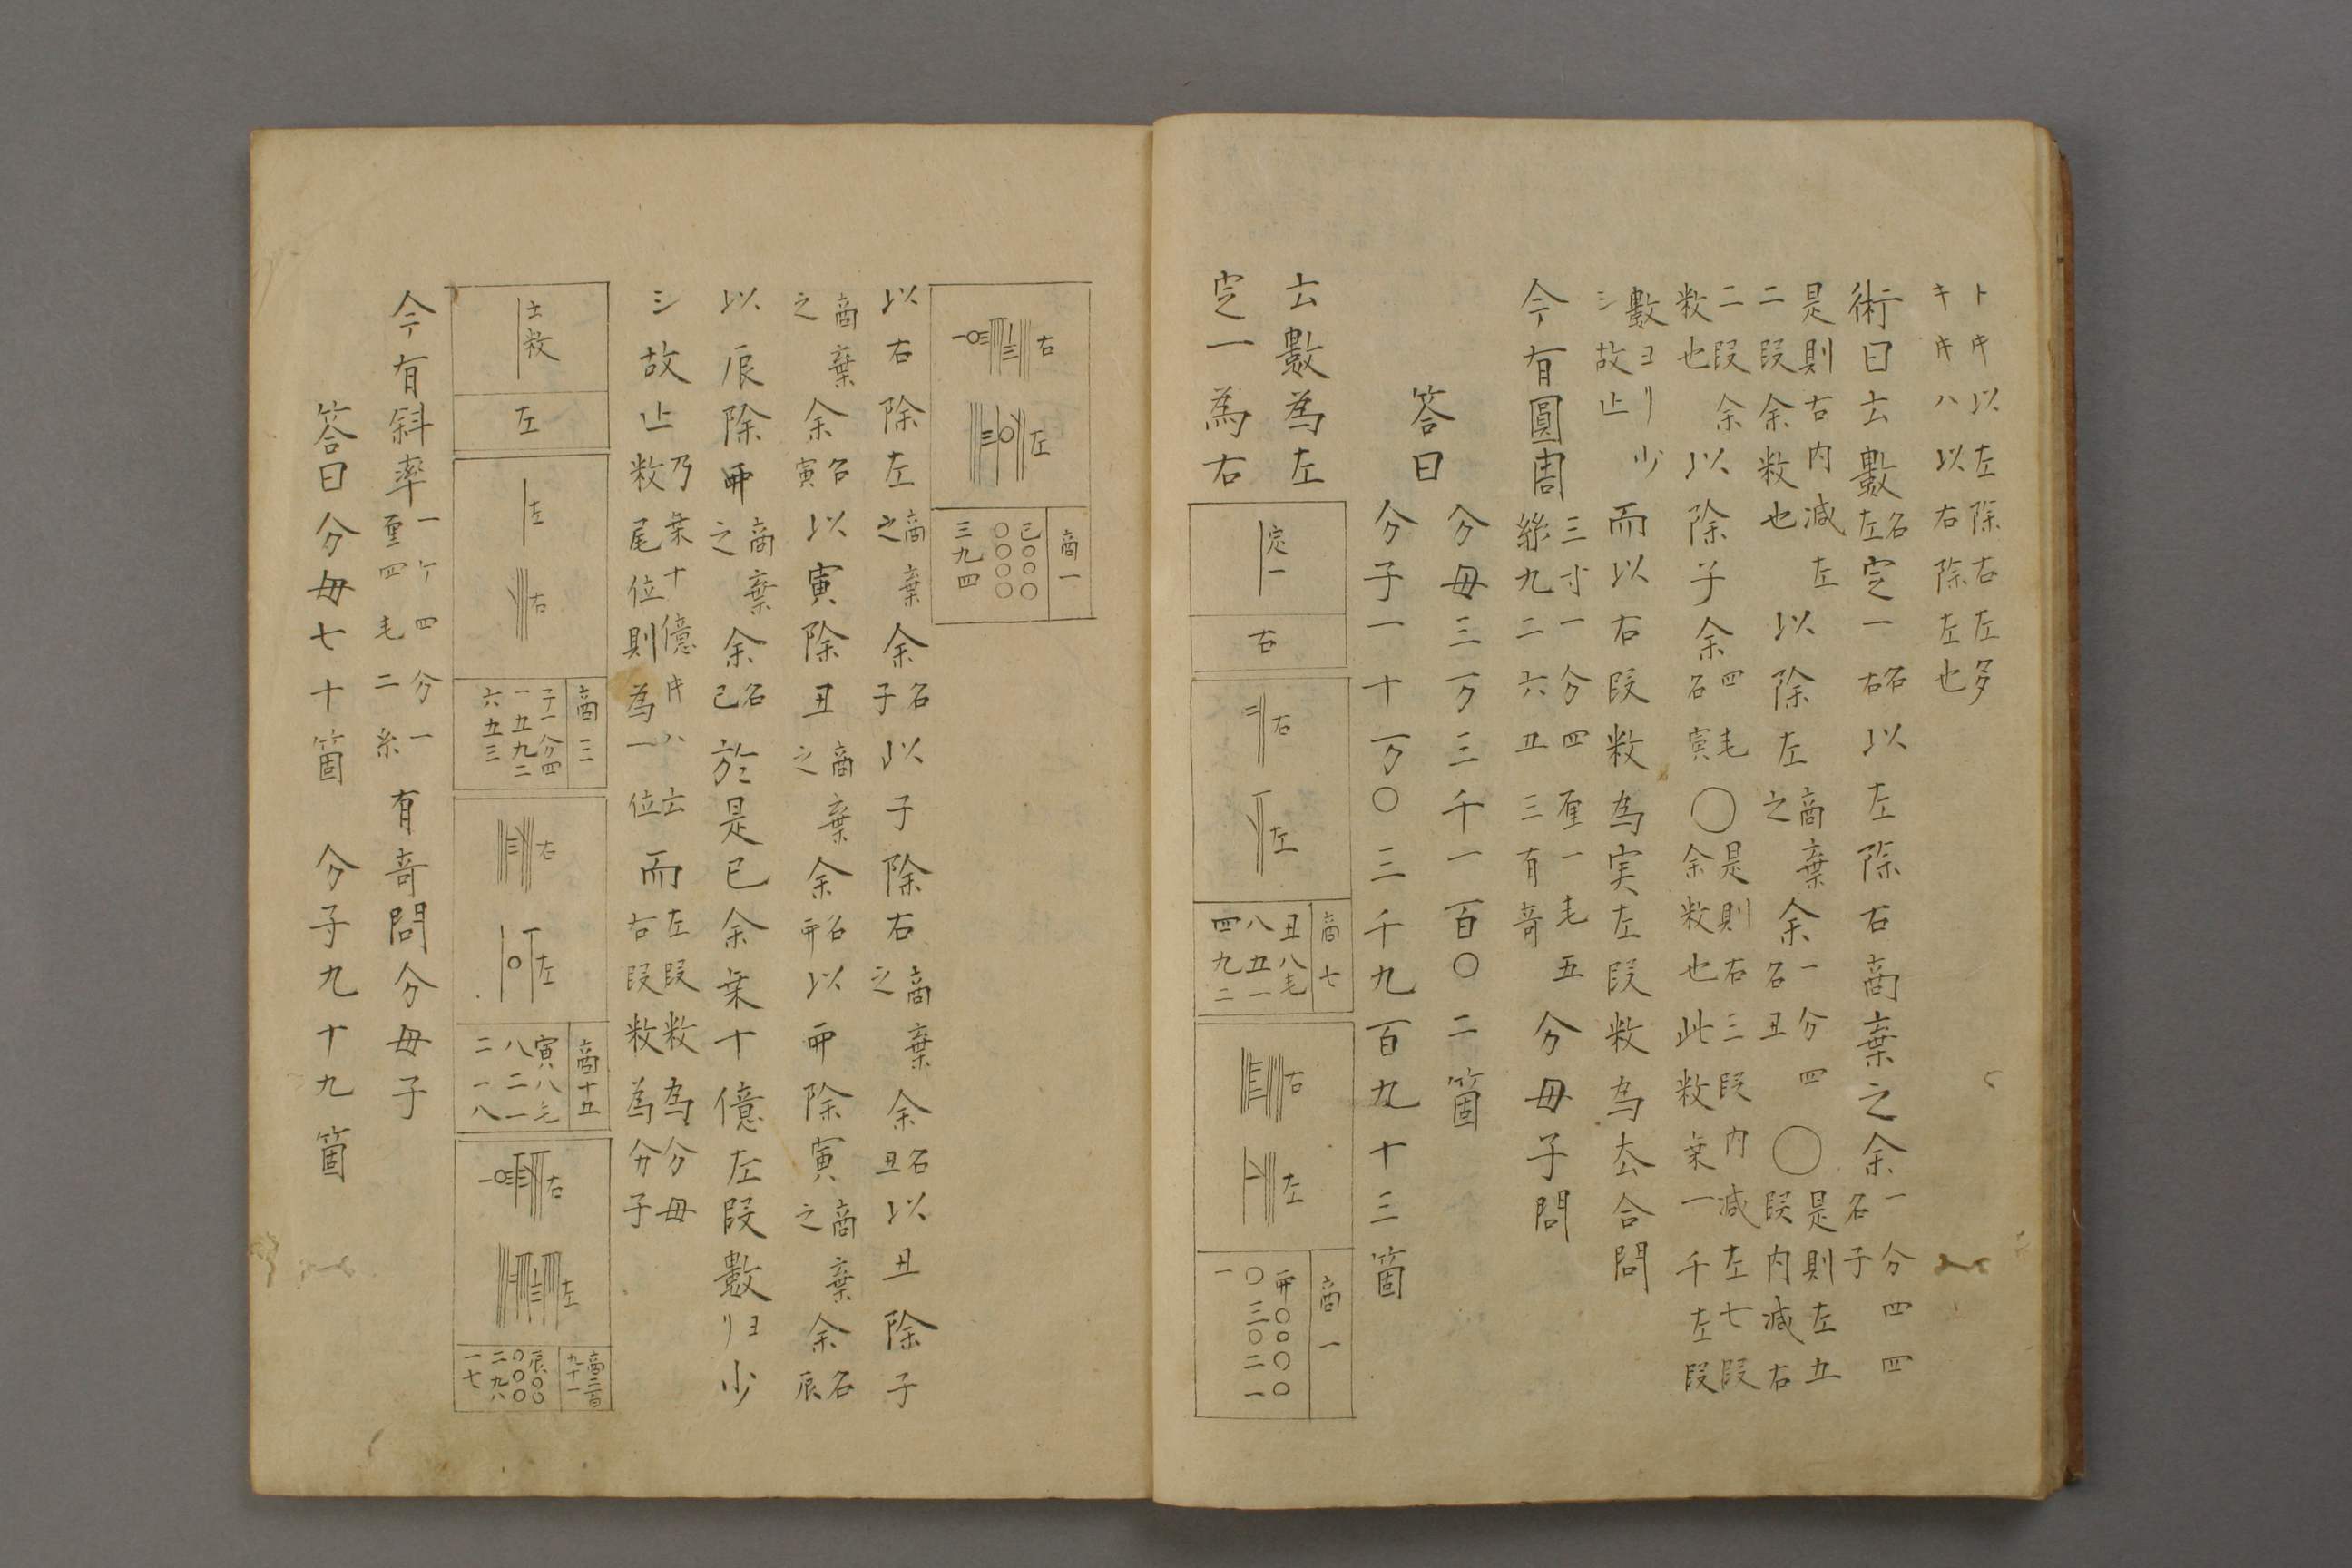 トキ以左除右左多
キキハ以右除左也
術曰士數名左定一名右以左除右商棄之余一分四四名子
是則左五段内減右二段余数也以除左商棄之余一分四名丑
是則右内減左二段余数也以除子余四毛名寅
是則右三段内減左七段余数也此数乗一千左段
數ヨリ少シ故止而以右段数為実左段数為法合問
今有圓周三寸一分四厘一毛五絲九二六五三有奇分母子問
答曰
分母三万三千一百〇二箇
分子一十万〇三千九百九十三箇
士數為左
定一為右
定一
右
右
左
商七
丑八毛
八五一
四九二
右
左
商一
〇〇〇〇
〇三〇二一
一
右
左
商一
巳〇〇〇
〇〇〇〇
三九四
以右除左商棄之余名子以子除右商棄之余名丑以丑除子
商棄之余名寅以寅除丑商棄之余名卯以卯除寅商棄之余名辰
以辰除卯商棄之余名巳於是巳余乗十億左段數ヨリ少
シ故止乃乗十億キハ士数尾位則為一位而左段数為分母右段数為分子
士数
左
左
右
商三
子一分四
一五九二
六五三
右
左
商十五
寅八毛
八二一
二一八
右
左
商二百九十一
辰〇〇
〇〇〇
二九八
一七
今有斜率一ケ四分一厘四毛二糸有奇問分母子
答曰分母七十箇 分子九十九箇